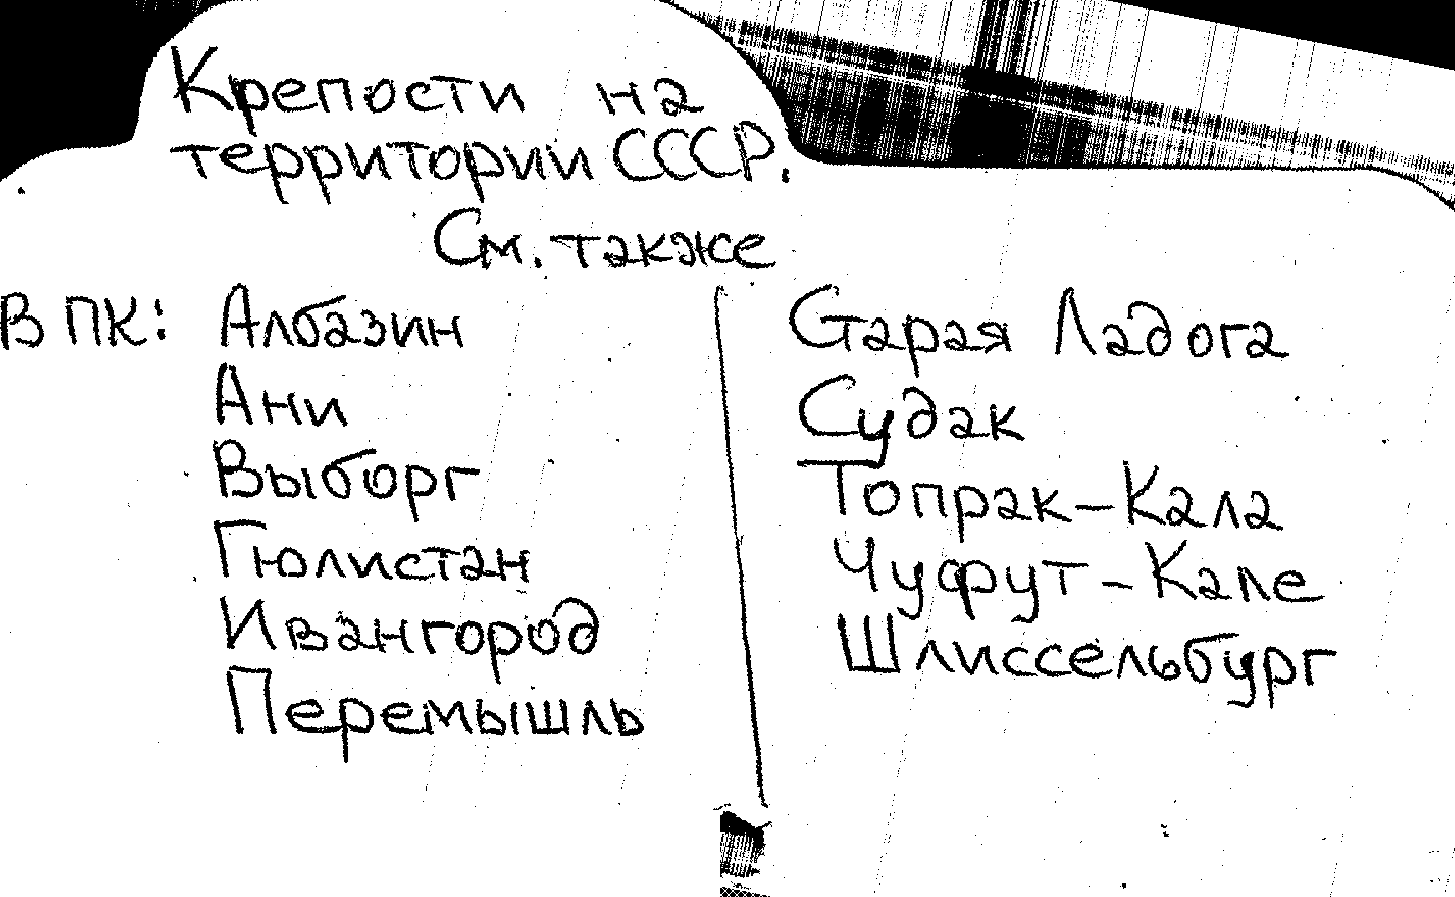 Крепости на
территории СССР.
См. также
В ПК: Албазин
Ани
Выборг
Гюлистан
Ивангород
Перемышль
Старая Ладога
Судак
Топрак-Кала
Чуфут-Кале
Шлиссельбург